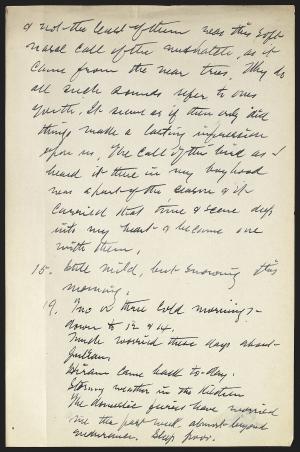 & not the least of them was this soft
nasal call of the nuthatch, as it
came from the near trees. Why do
all such sounds refer to ones
youth. It seems as if then only did
things make a lasting impression
upon us. The call of this bird as I
heard it there in my boyhood
was a part of the season & it
carried that time & scene deep
into my heart & became one
with them.
18. Still mild, but snowing this
morning.
19. Two or three cold mornings -
down to 12 & 14.
Much worried these days about
Julian.
Hiram came back to-day.
Stormy weather in the kitchen
The domestic furies have worried
me the past week almost beyond
endurance. Sleep poor.